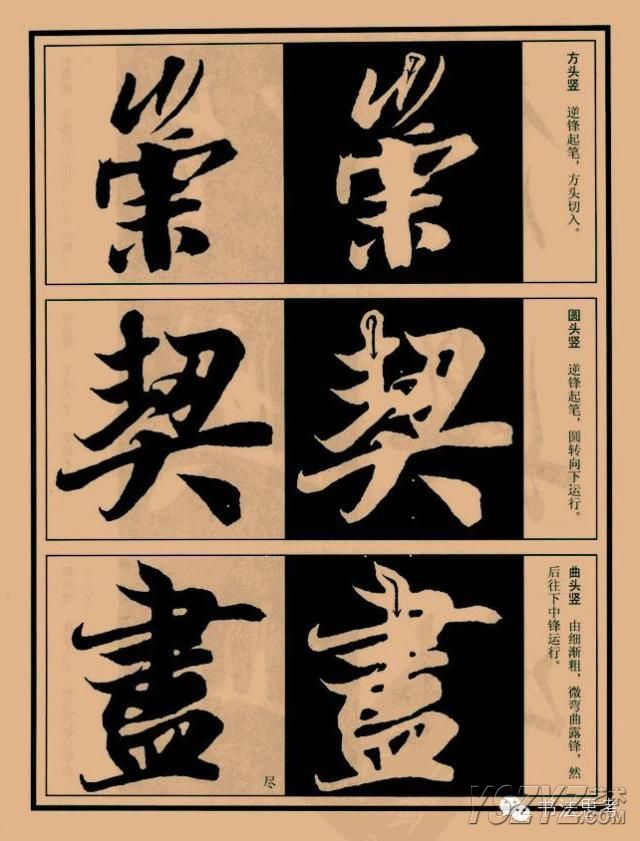 方头竖 逆锋起笔，方头切入。
崇
崇
圆头竖 逆锋起笔，圆转向下运行。
契
契
曲头竖 由细渐粗，微弯曲露锋，然
后往下中锋运行。
盡
盡
尽
书法思考
.COM